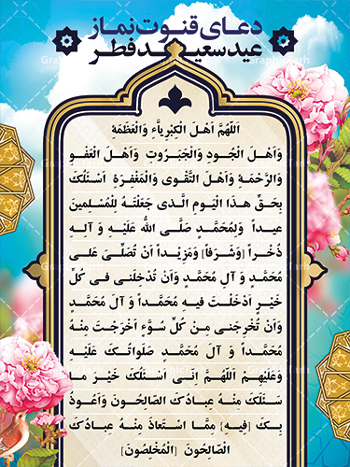 دعای قنوت نماز
عید سعید فطر
اَللّهُمَّ اَهْلَ الْكِبْرِياَّءِ وَالْعَظَمَةِ
وَاَهْلَ الْجُودِ وَالْجَبَرُوتِ وَاَهْلَ الْعَفْوِ
وَالرَّحْمَةِ وَاَهْلَ التَّقْوى وَالْمَغْفِرَةِ اَسْئَلُكَ
بِحَقِّ هذَا الْيَومِ الَّذى جَعَلْتَهُ لِلْمُسْلِمينَ
عيداً وَلِمُحَمَّدٍ صَلَّى اللهُ عَلَيْهِ وَ آلِهِ
ذُخْراً [وَشَرَفاً] وَمَزيْداً اَنْ تُصَلِّىَ عَلى
مُحَمَّدٍ وَ آلِ مُحَمَّدٍ وَاَنْ تُدْخِلَنى فى كُلِّ
خَيْرٍ اَدْخَلْتَ فيهِ مُحَمَّداً وَ آلَ مُحَمَّدٍ
وَاَنْ تُخْرِجَنى مِنْ كُلِّ سُوَّءٍ اَخْرَجْتَ مِنْهُ
مُحَمَّداً وَ آلَ مُحَمَّدٍ صَلَواتُكَ عَلَيْهِ
وَعَلَيْهِمْ اَللّهُمَّ اِنّى اَسْئَلُكَ خَيْرَ ما
سَئَلَكَ مِنْهُ عِبادُكَ الصّالِحُونَ وَاَعُوذُ
بِكَ [فيهِ] مِمَّا اسْتَعاذَ مِنْهُ عِبادُكَ
الْصّالِحُونَ [الْمُخْلَصُونَ]